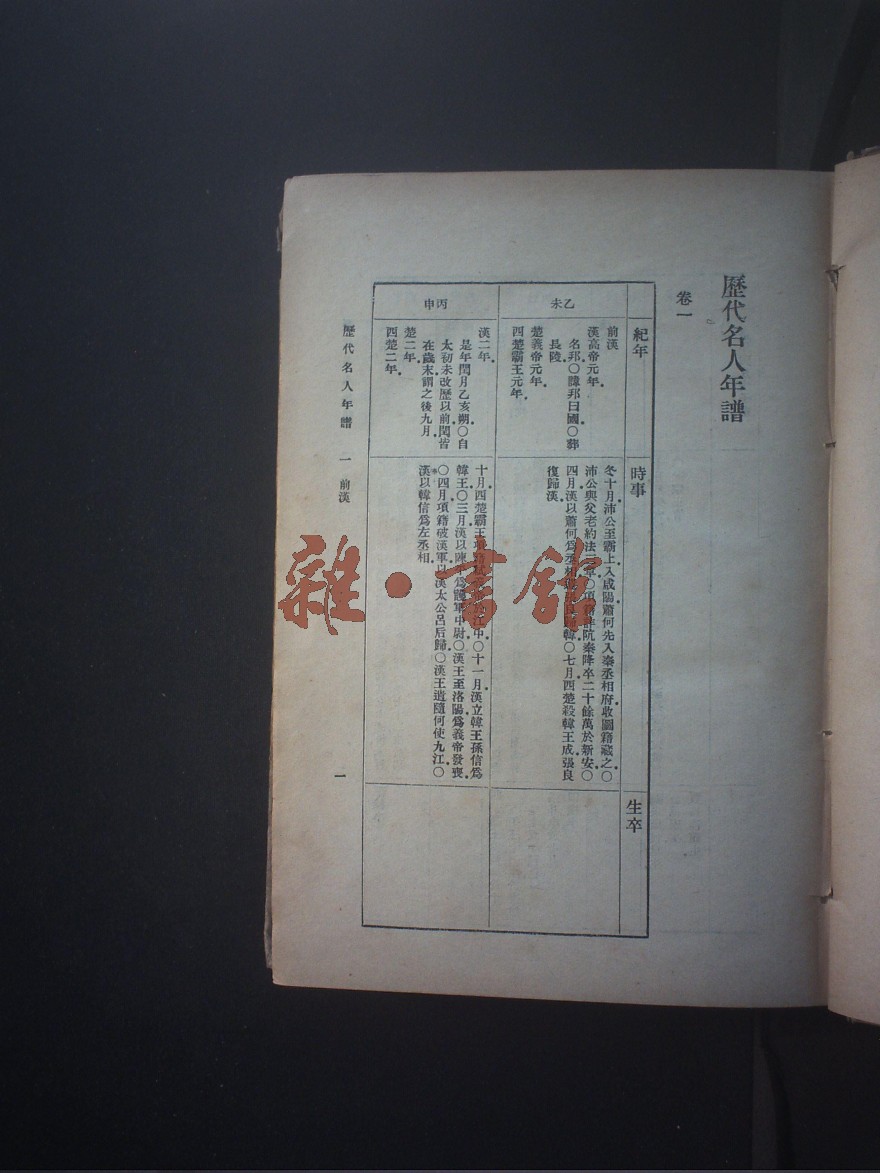 歷代名人年譜
卷一
紀年
時事
生卒
乙未
前漢
漢高帝元年。
名邦〇諱邦曰國〇葬
長陵。
楚義帝元年。
西楚霸王元年。
冬十月沛公至霸上入咸陽蕭何先入秦丞相府收圖籍藏之〇
沛公與父老約法三章〇項籍詐阬秦降卒二十餘萬於新安〇
四月漢以蕭何爲丞相 韓〇七月西楚殺韓王成張良
復歸漢。
丙申
漢二年。
是年閏月乙亥朔〇自
太初未改歷以前閏皆
在歲末謂之後九月。
楚二年。
西楚二年。
十月西楚霸王項籍弑 江中〇十一月漢立韓王孫信爲
韓王〇三月漢以陳平爲護軍中尉〇漢王至洛陽爲義帝發喪
〇四月項籍破漢軍以漢太公呂后歸〇漢王遣隨何使九江〇
漢以韓信爲左丞相。
歷代名人年譜 一 前漢
一
雜·書館